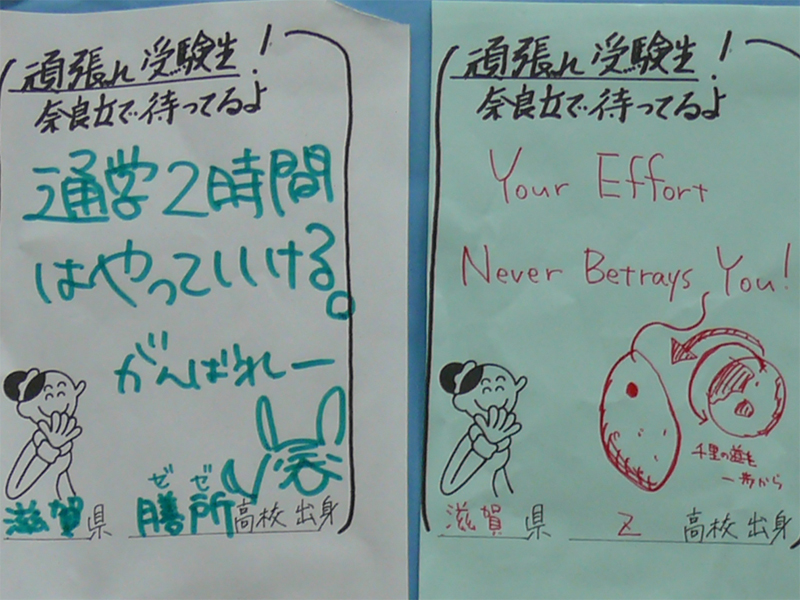 頑張れ受験生!
奈良女で待ってるよ
通学2時間
はやっていける。
がんばれー
ゼゼ
滋賀県 膳所高校出身
頑張れ受験生!
奈良女で待ってるよ
Your Effort
Never Betrays You!
千里の道も
一歩から
滋賀県 Z 高校出身